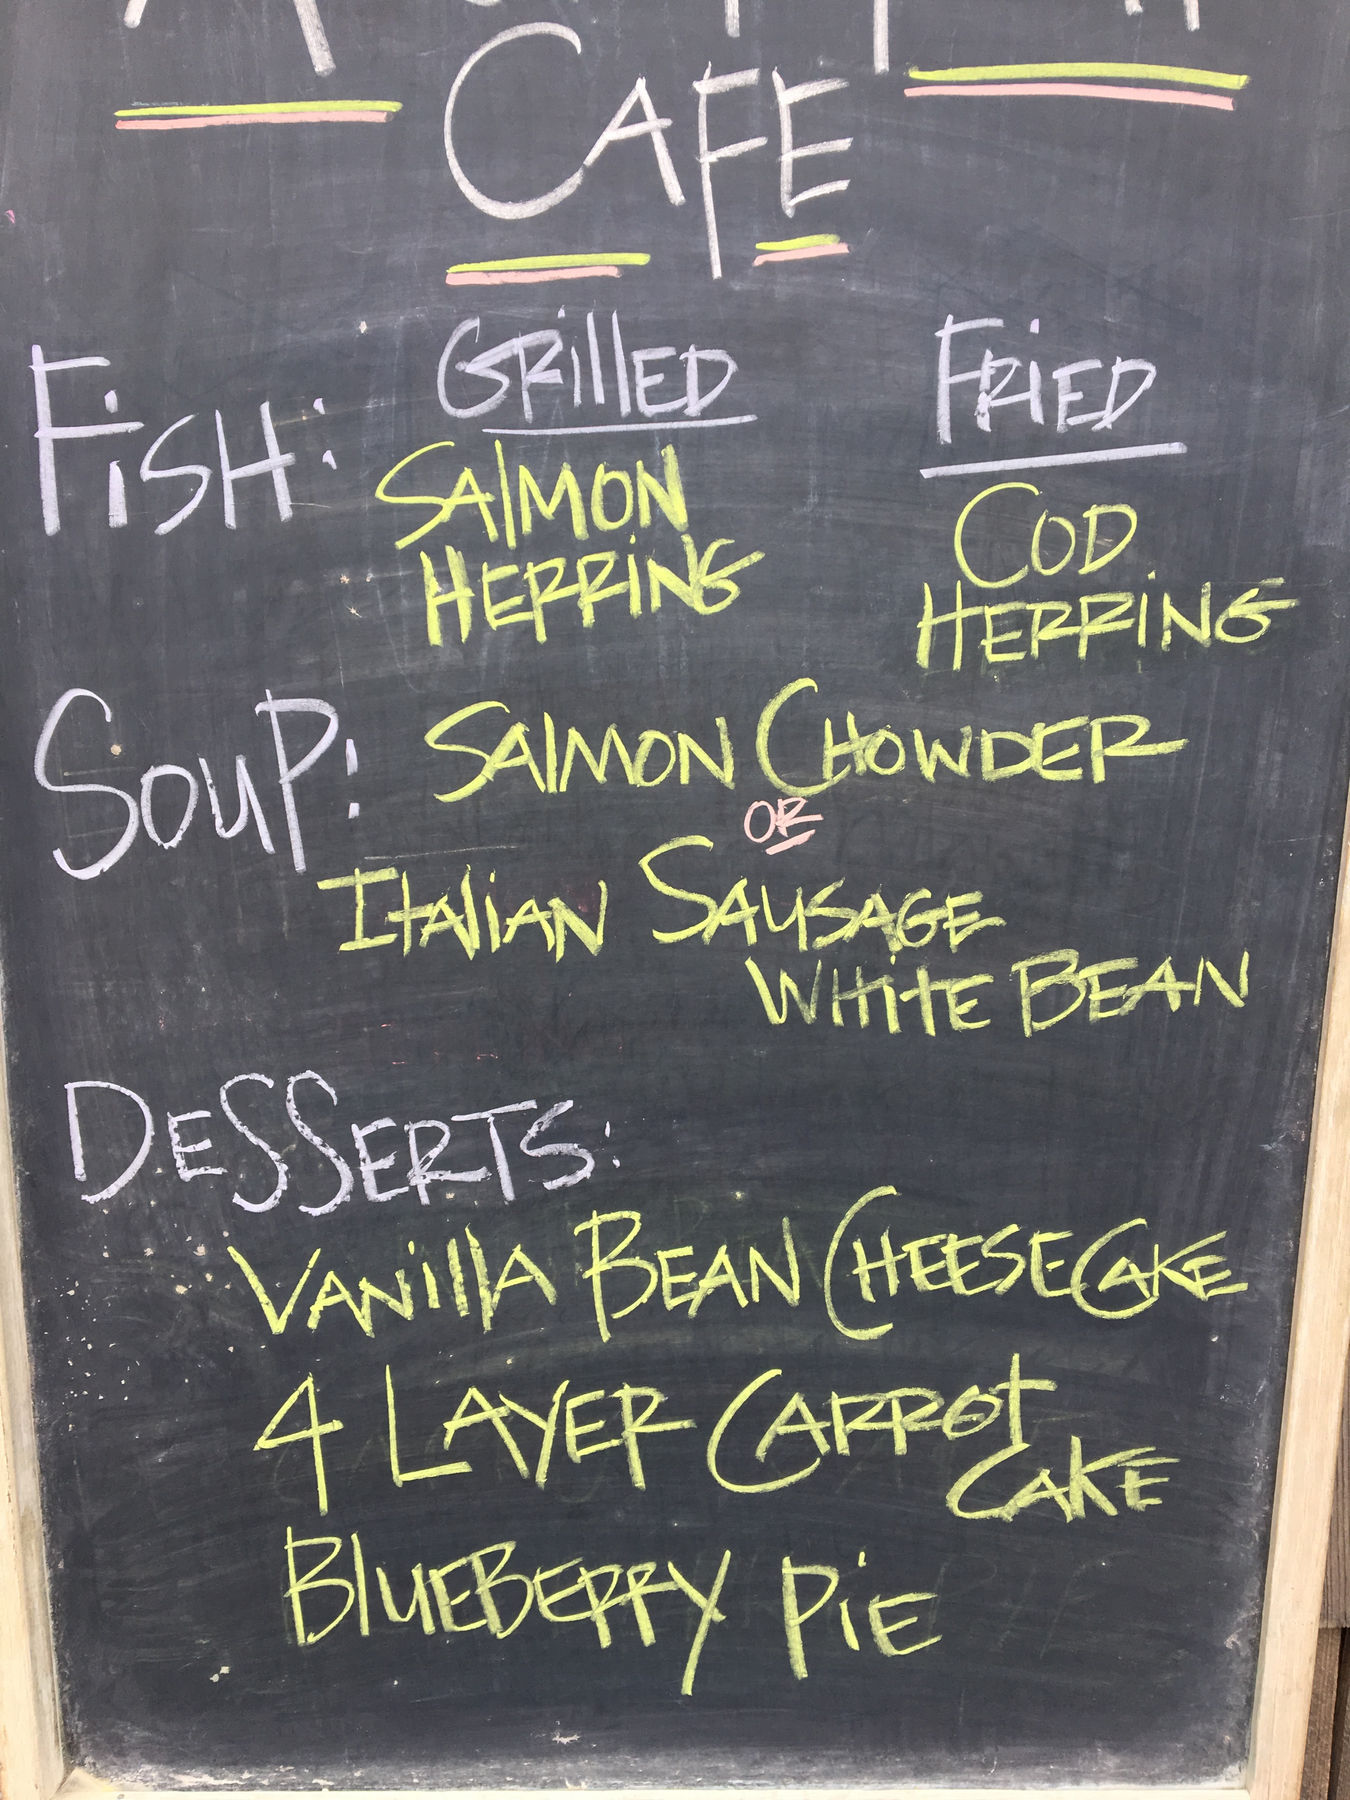 CAFE
FiSH: GRillED FRiED
SAlMON COD
HERRiNG HERRiNG
SOUP: SAlMON CHOWDER
OR
ITAliAN SAUSAGE
WHiTE BEAN
DeSSERTS:
VANillA BEAN CHEESECAKE
4 LAYER CARROT
CAKE
BlUEBERRY PiE